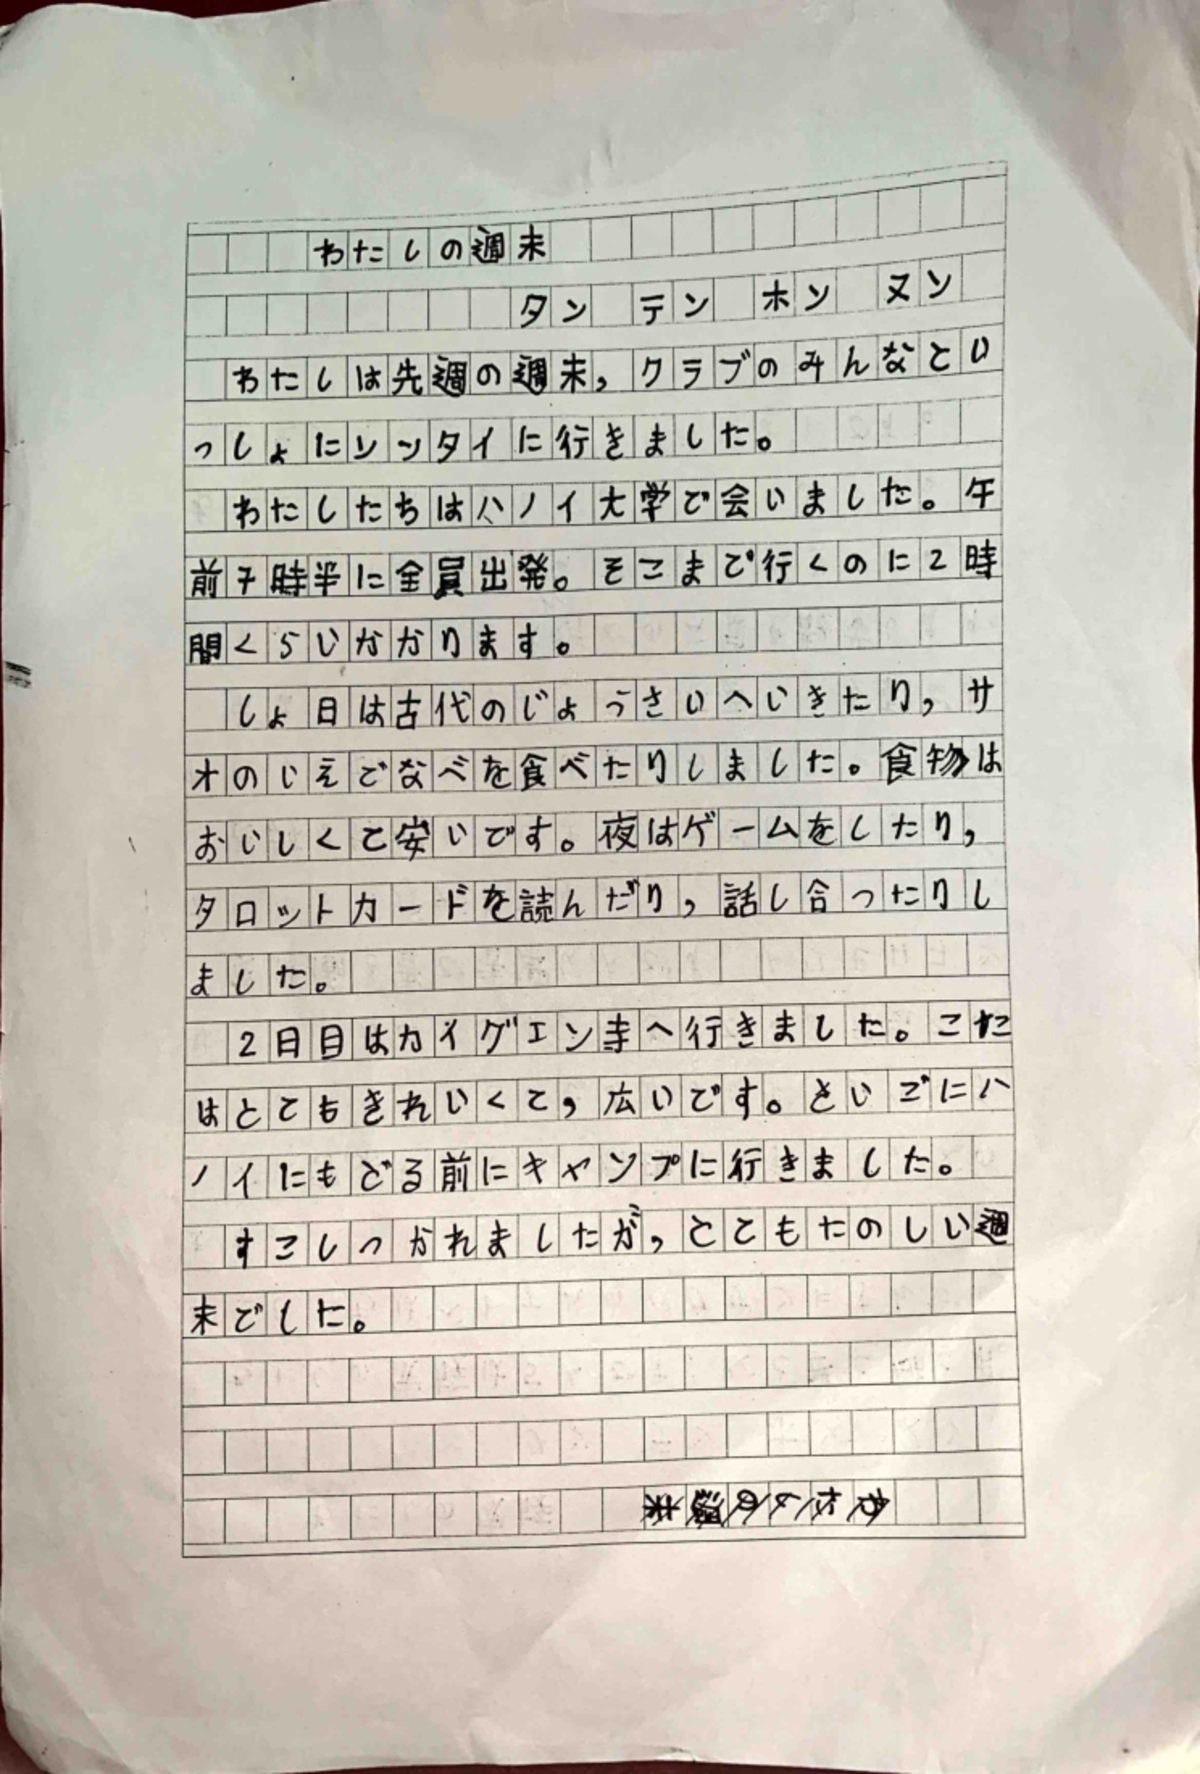 わたしの週末
タン テン ホン ヌン
わたしは先週の週末,クラブのみんなとい
っしょにソンタイに行きました。
わたしたちはハノイ大学で会いました。午
前7時半に全員出発。そこまで行くのに2時
間くらいかかります。
しょ日は古代のじょうさいへいきたり,サ
オのいえでなべを食べたりしました。食物は
おいしくて安いです。夜はゲームをしたり,
タロットカードを読んだり,話し合ったりし
ました。
2日目はカイグエン寺へ行きました。こた
はとてもきれいくて,広いです。といごにハ
ノイにもどる前にキャンプに行きました。
すこしつかれましたが,とてもたのしい週
末でした。